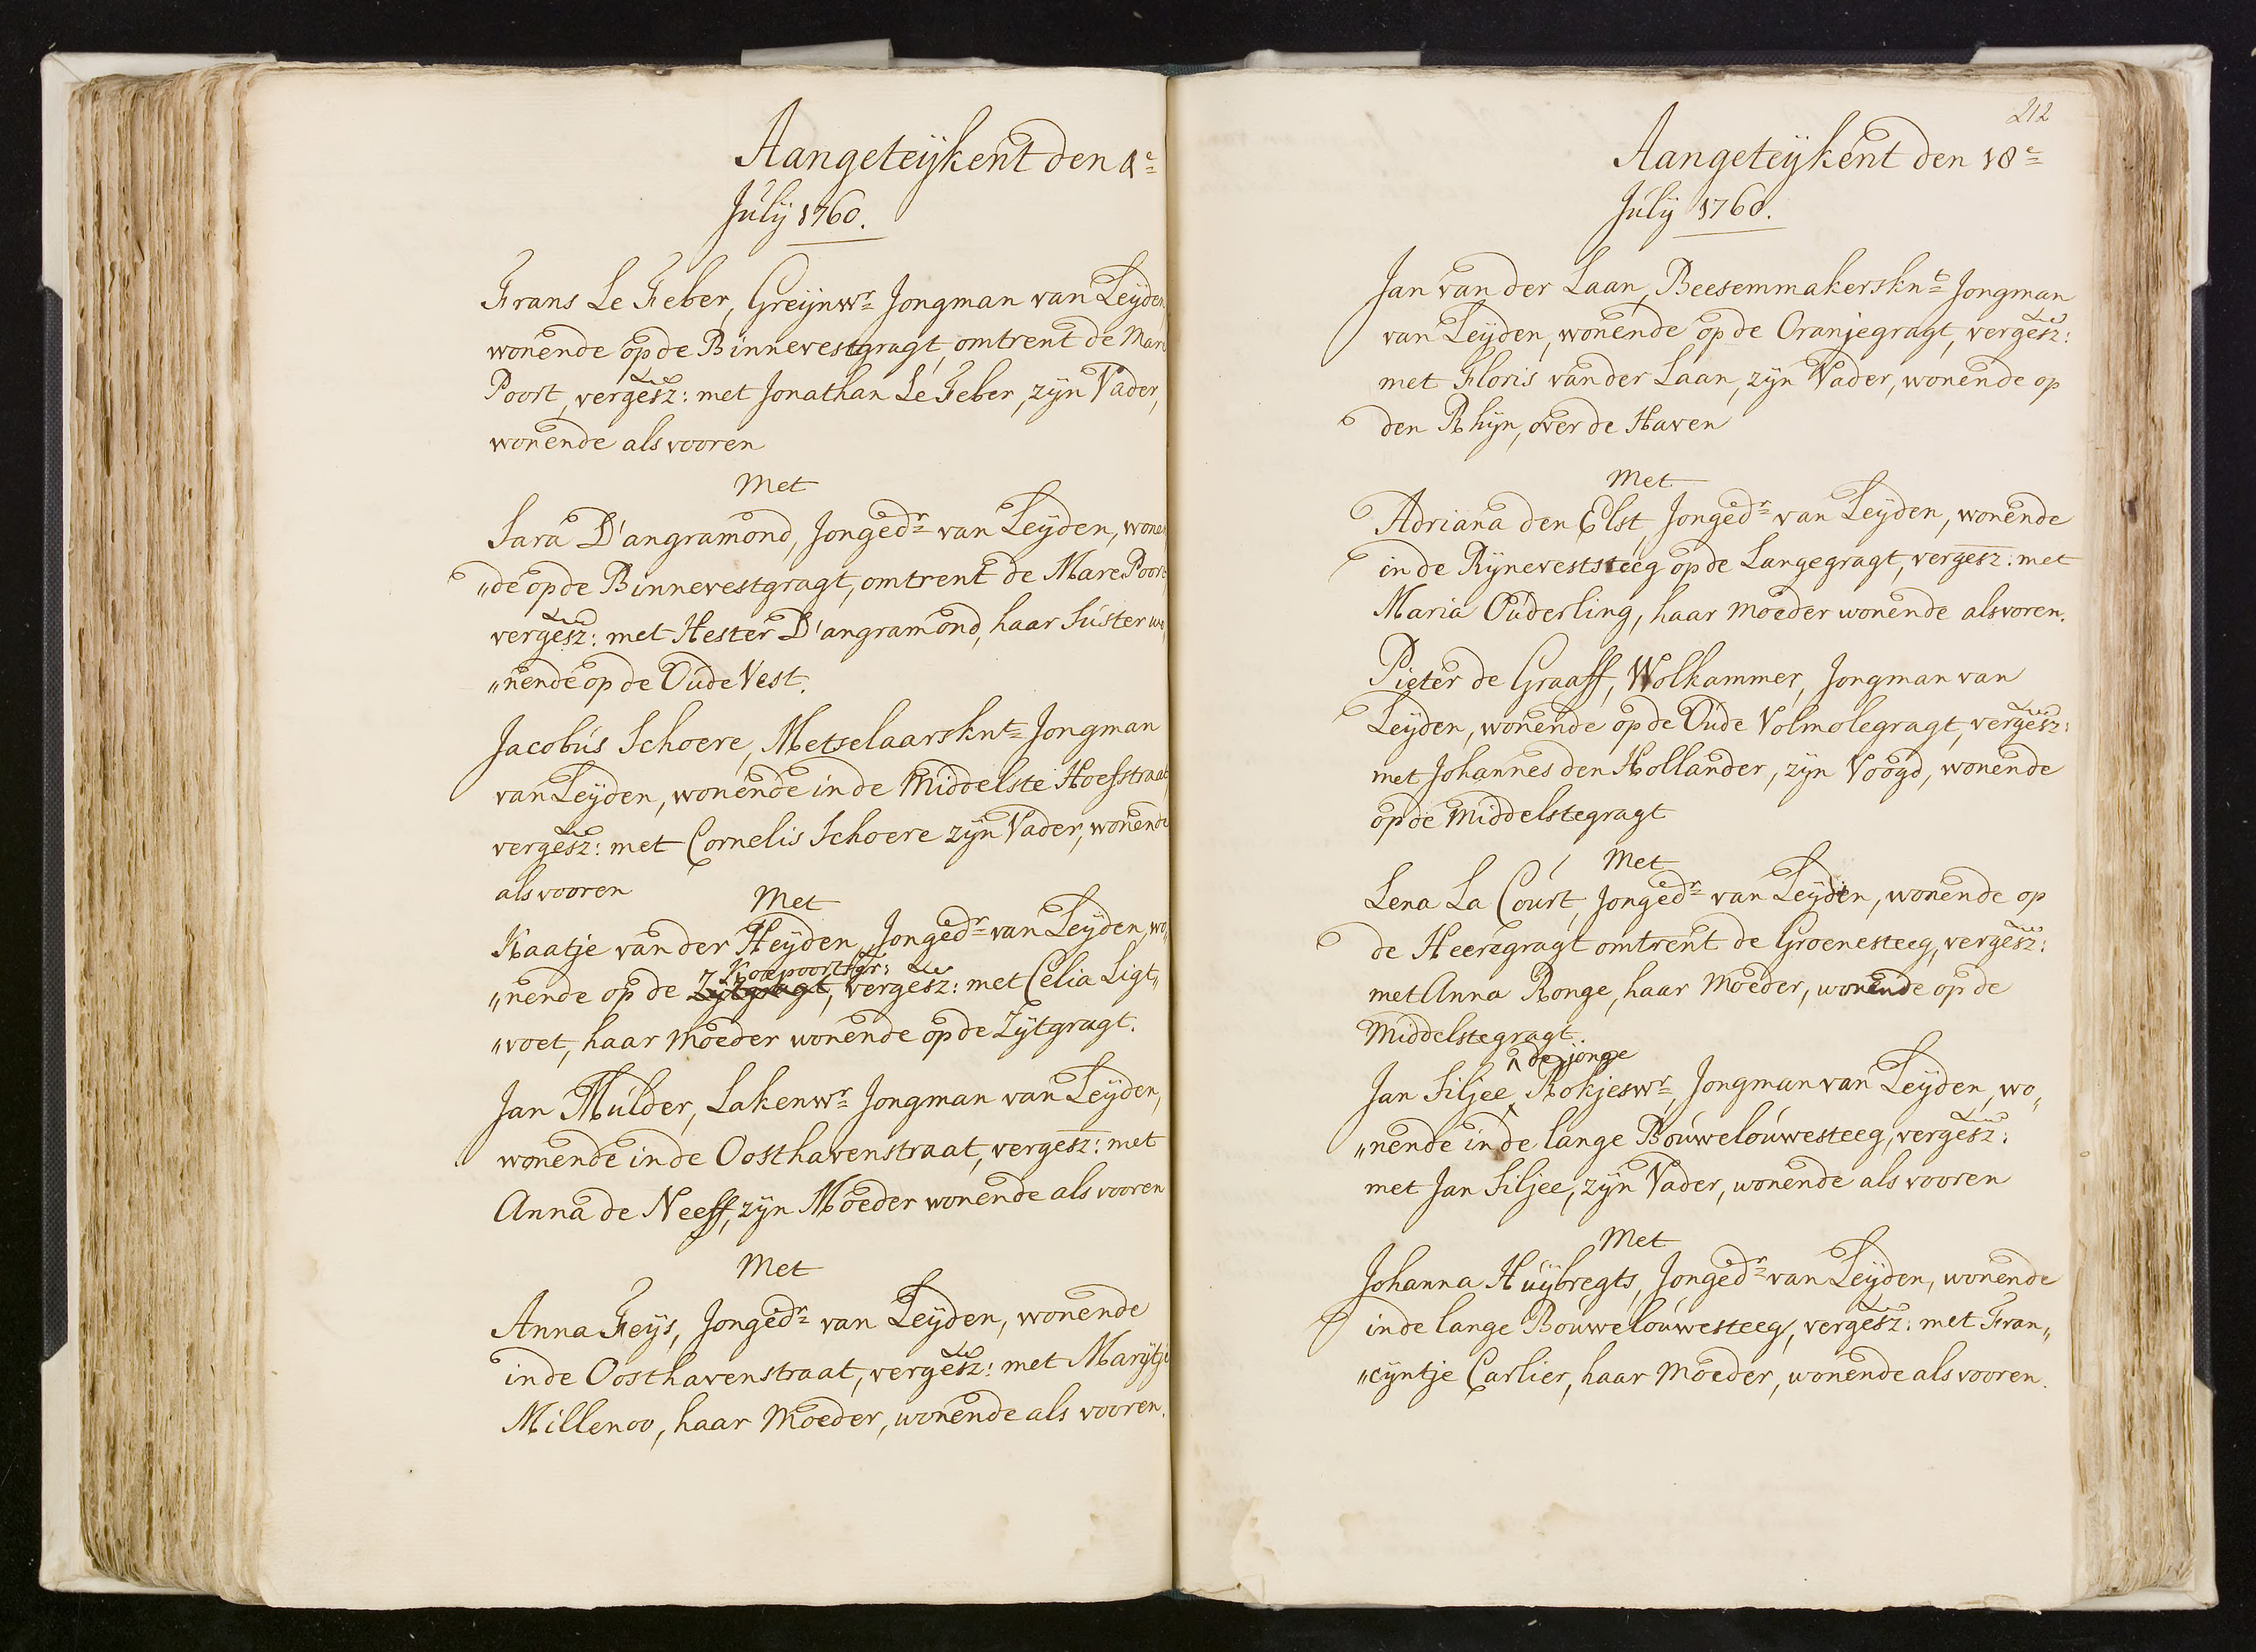 Aangeteijkent den
Julij 1760.
Frans Le Feber, Greijnwr= Jongman van Leijden,
wonende op de Binnevestgragt, omtrent de Mare
Poort, vergesz: met Jonathan Le Feber, zijn Vader,
wonende als vooren
Met
Sara D'angramond, Jongedr= van Leijden, wonen
„de op de Binnevestgragt, omtrent de Mare Poort
vergesz: met Hester D'angramond, haar Suster wo„
„nende op de Oude Vest.
Jacobus Schoere, Metselaarsknt= Jongman
van Leijden, wonende in de Middelste Hoefstraat
vergesz: met Cornelis Schoere zijn Vader, wonende
als vooren
Met
Kaatje van der Heijden, Jongedr= van Leijden, wo„
Koepoortsgr:
„nende op de Zijtgragt, vergesz: met Celia Ligt„
„voet, haar Moeder wonende op de Zijtgragt.
Jan Mulder, Lakenwr= Jongman van Leijden,
wonende in de Oosthavenstraat, vergesz: met
Anna de Neeff, zijn Moeder wonende als vooren
Met
Anna Feijs, Jongedr= van Leijden, wonende
in de Oosthavenstraat, vergesz: met Marijtje
Millenoo, haar Moeder, wonende als vooren.
212
Aangeteijkent den 18e=
Julij 1760.
Jan van der Laan, Beesemmakersknt= Jongman
van Leijden, wonende op de Oranjegragt, vergesz:
met Floris van der Laan, zijn Vader, wonende op
den Rhijn, over de Haven
Met
Adriana den Elst, Jongedr= van Leijden, wonende
in de Rijneveststeeg op de Langegragt, vergesz: met
Maria Ouderling, haar Moeder wonende als voren.
Pieter de Graaff, Wolkammer, Jongman van
Leijden, wonende op de Oude Volmolegragt, vergesz:
met Johannes den Hollander, zijn Voogd, wonende
op de Middelstegragt
Met
Lena La Court, Jongedr= van Leijden, wonende op
de Heeregragt omtrent de Groenesteeg, vergesz:
met Anna Ronge, haar Moeder, wonende op de
Middelstegragt.
de jonge
Jan Siljee, Rokjeswr=, Jongman van Leijden, wo„
„nende in de lange Bouwelouwesteeg, vergesz:
met Jan Siljee, zijn Vader, wonende als vooren
Met
Johanna Huijbregts, Jongedr= van Leijden, wonende
in de lange Bouwelouwesteeg, vergesz: met Fran„
„cijntje Carlier, haar Moeder, wonende als vooren.